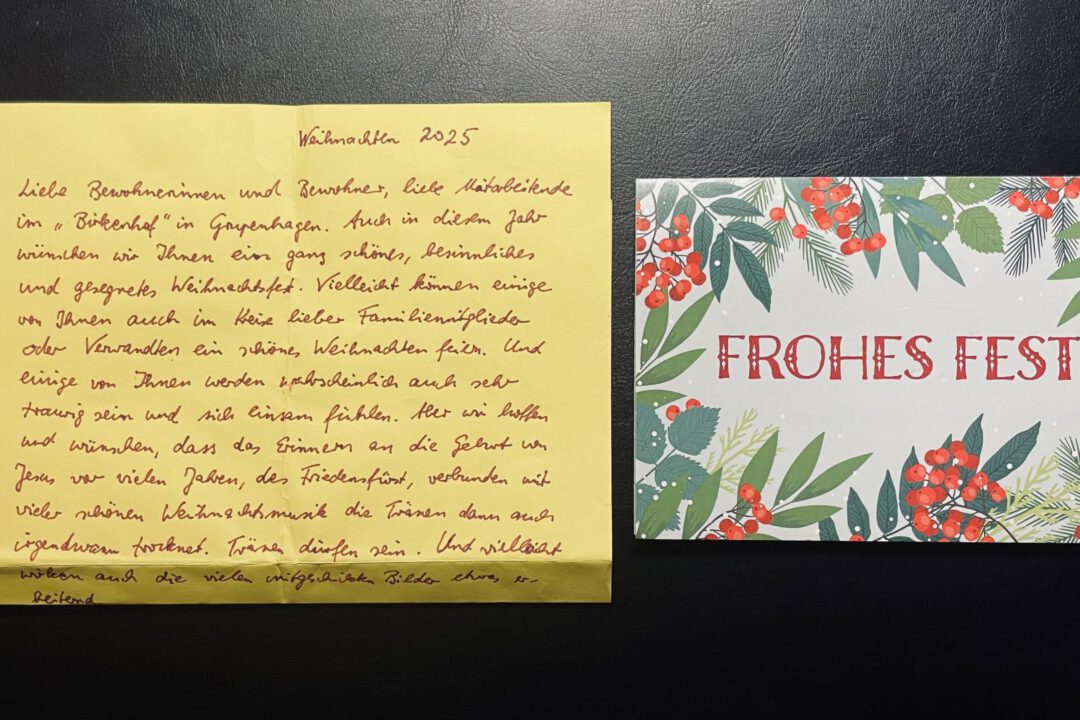 Weihnachten 2025
Liebe Bewohnerinnen und Bewohner, liebe Mitarbeitende
im „Birkenhof" in Grupenhagen. Auch in diesem Jahr
wünschen wir Ihnen ein ganz schönes, besinnliches
und gesegnetes Weihnachtsfest. Vielleicht können einige
von Ihnen auch im Kreise lieber Familienmitglieder
oder Verwandten ein schönes Weihnachten feiern. Und
einige von Ihnen werden wahrscheinlich auch sehr
traurig sein und sich einsam fühlen. Aber wir hoffen
und wünschen, dass das Erinnern an die Geburt von
Jesus vor vielen Jahren, des Friedensfürst, verbunden mit
vieler schönen Weihnachtsmusik die Tränen dann auch
irgendwann trocknet. Tränen dürfen sein. Und vielleicht
wirken auch die vielen mitgeschickten Bilder etwas er-
heiternd.
FROHES FEST